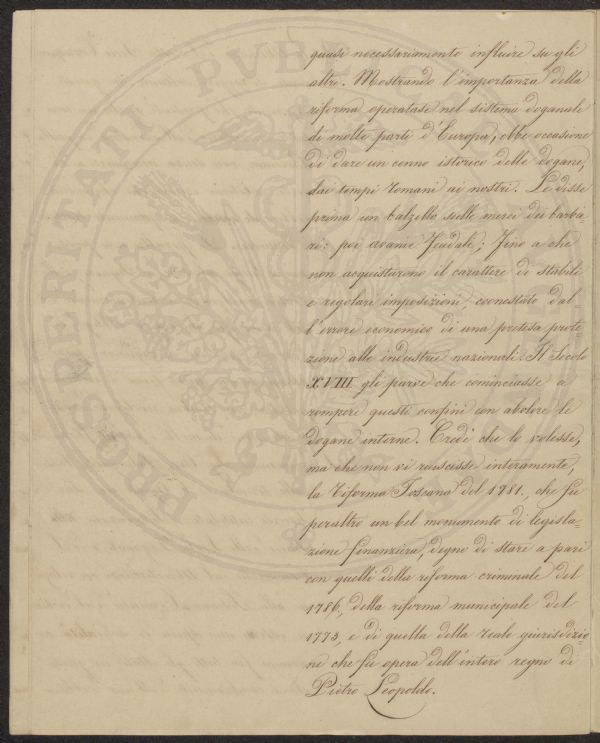 quasi necessariamente influire su gli
altri. Mostrando l'importanza della
riforma operatasi nel sistema doganale
di molte parti d'Europa, ebbe occasione
di dare un cenno istorico delle dogane,
dai tempi romani ai nostri. Le disse
prima un balzello sulle merci dei barba
ri: poi avanie feudali; fino a che
non acquistarono il carattere di stabili
e regolari imposizioni, coonestato dal
l'errore economico di una pretesa prote-
zione alle industrie nazionali. Il Secolo
XVIII gli parve che cominciasse a
rompere questi confini con abolire le
dogane interne. Credè che lo volesse,
ma che non vi riuscisse interamente,
la riforma Toscana del 1781., che fu
peraltro un bel monumento di legisla=
zione finanziera, degno di stare a pari
con quelli della riforma criminale del
1786, della riforma municipale del
1773, e di quella della reale giurisdizio
ne che fu opera dell'intero regno di
Pietro Leopoldo.
PROSPERITATI PVB